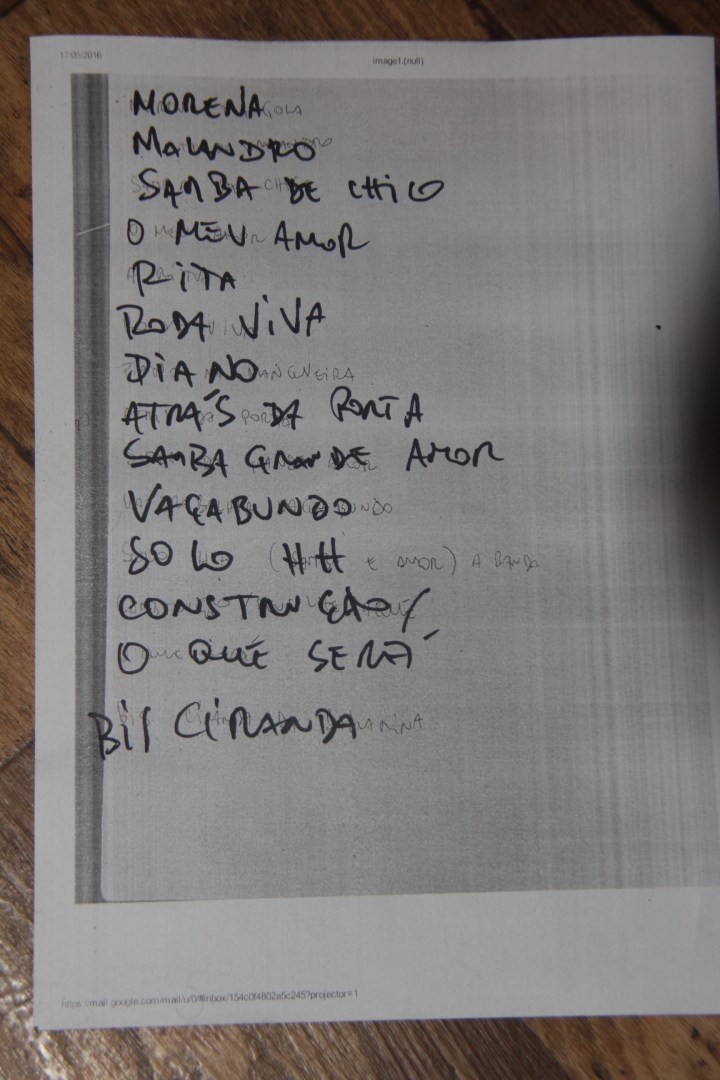 17/05/2016 image1.(null)
MORENA GOLA
MALANDRO
SAMBA DE CHICO
O MEU AMOR
RITA
RODA VIVA
DIA NO MANGUEIRA
ATRÁS DA PORTA
SAMBA GRANDE AMOR
VAGABUNDO
SOLO HH ( E AMOR) A BANDA
CONSTRUÇÃO/
O QUE SERÁ
BIS CIRANDA
https://mail.google.com/mail/u/0/#inbox/154c0f4802a5c245?projector=1